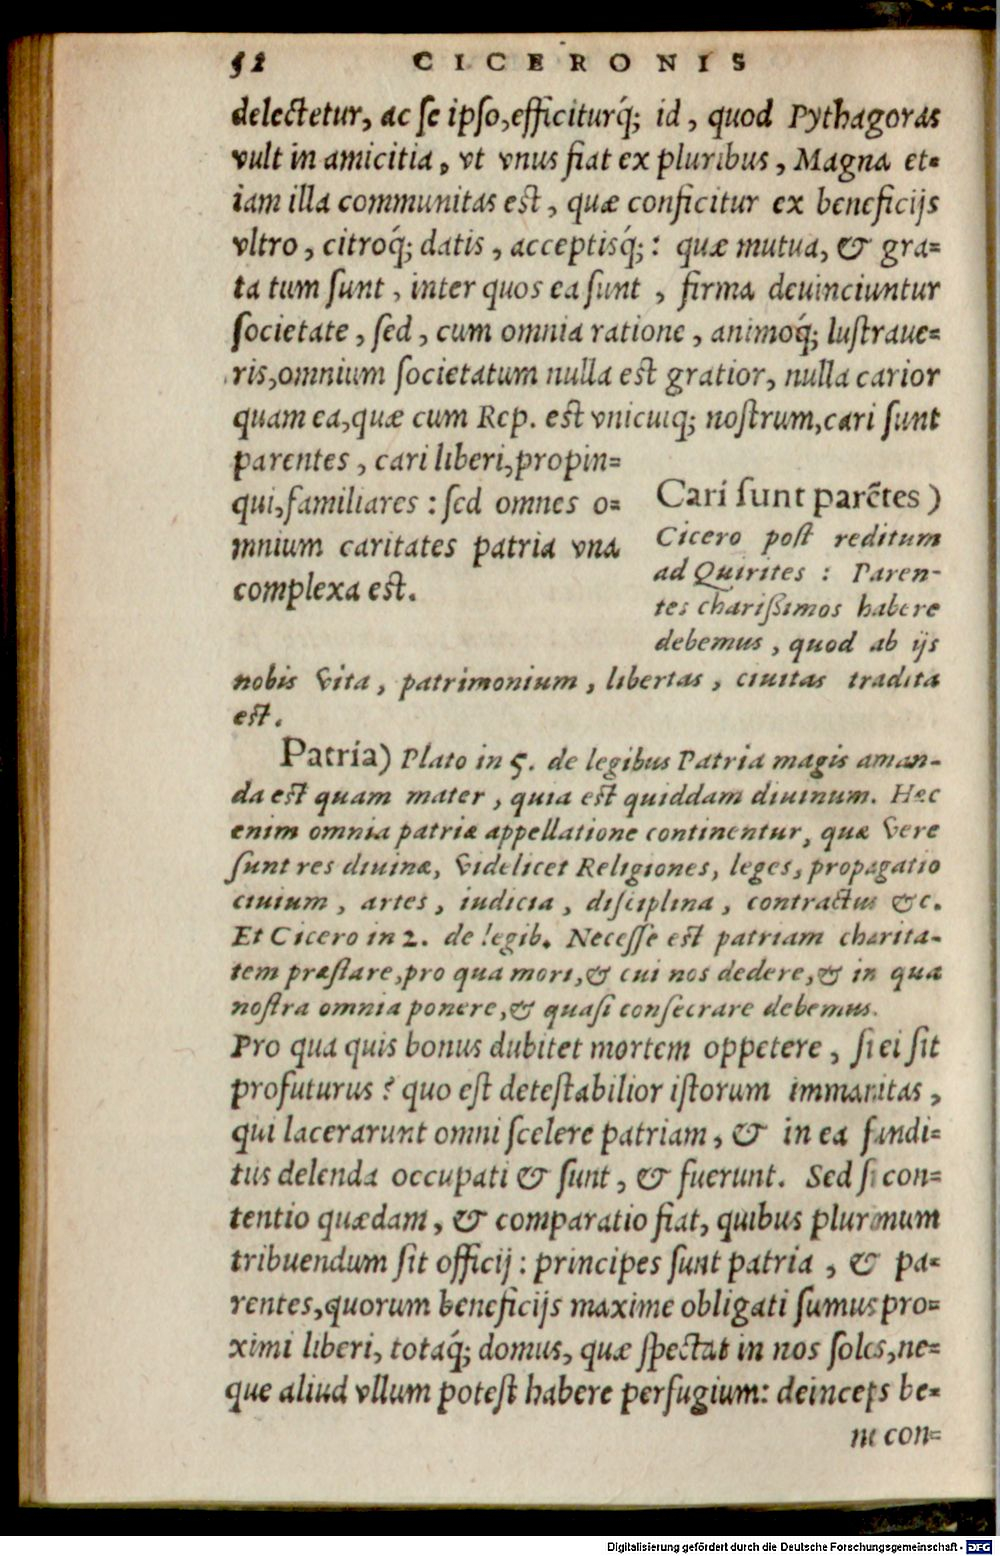 52 CICERONIS
delectetur, ac se ipso, efficiturq́; id, quod Pythagoras
vult in amicitia, vt vnus fiat ex pluribus, Magna et=
iam illa communitas est, quæ conficitur ex beneficijs
vltro, citroq́; datis, acceptisq́;: quæ mutua, & gra=
ta tum sunt, inter quos ea sunt, firma deuinciuntur
societate, sed, cum omnia ratione, animoq́; lustraue=
ris, omnium societatum nulla est gratior, nulla carior
quam ea, quæ cum Rep. est vnicuiq; nostrum, cari sunt
parentes, cari liberi, propin=
qui, familiares: sed omnes o=
mnium caritates patria vna
complexa est.
Cari sunt parẽtes)
Cicero post reditum
ad Quirites: Paren-
tes charissimos habere
debemus, quod ab ijs
nobis vita, patrimonium, libertas, ciuitas tradita
est.
Patria) Plato in 5. de legibus Patria magis aman-
da est quam mater, quia est quiddam diuinum. Hæc
enim omnia patriæ appellatione continentur, quæ vere
sunt res diuinæ, videlicet Religiones, leges, propagatio
ciuium, artes, iudicia, disciplina, contractus &c.
Et Cicero in 2. de legib. Necesse est patriam charita-
tem præstare, pro qua mori, & cui nos dedere, & in qua
nostra omnia ponere, & quasi consecrare debemus.
Pro qua quis bonus dubitet mortem oppetere, si ei sit
profuturus? quo est detestabilior istorum immanitas,
qui lacerarunt omni scelere patriam, & in ea fundi=
tus delenda occupati & sunt, & fuerunt. Sed si con=
tentio quædam, & comparatio fiat, quibus plurimum
tribuendum sit officij: principes sunt patria, & pa=
rentes, quorum beneficijs maxime obligati sumus pro=
ximi liberi, totaq́; domus, quæ spectat in nos solos, ne=
que aliud vllum potest habere perfugium: deinceps be=
ne con=
Digitalisierung gefördert durch die Deutsche Forschungsgemeinschaft - DFG